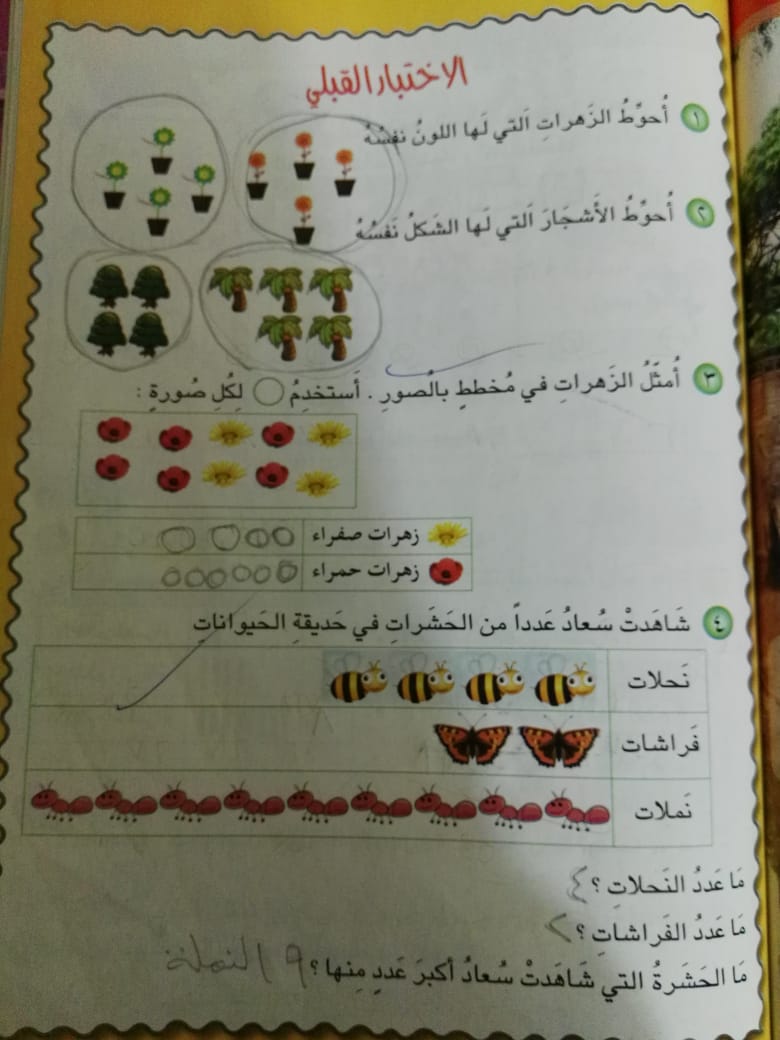 الاختبار القبلي
١ أُحوِّطُ الزَهراتِ اَلتي لَها اللونُ نفسُهُ
٢ أُحوِّطُ الأَشجَارَ اَلتي لَها الشَكلُ نَفسُهُ
٣ أُمثِّلُ الزَهراتِ في مُخططٍ بالُصورِ . أَستخدِمُ ○ لِكُلِ صُورةٍ :
زهرات صفراء
زهرات حمراء
٤ شَاهَدتْ سُعادُ عَدداً من الحَشَراتِ في حَديقةِ الحَيواناتِ
نَحلات
فَراشات
نَملات
مَا عَددُ النَحلاتِ ؟ ٤
مَا عَددُ الفَراشاتِ ؟ ٢
مَا الحَشَرةُ التي شَاهَدتْ سُعادُ أكبرَ عَددٍ مِنها ؟ ٩ النملة